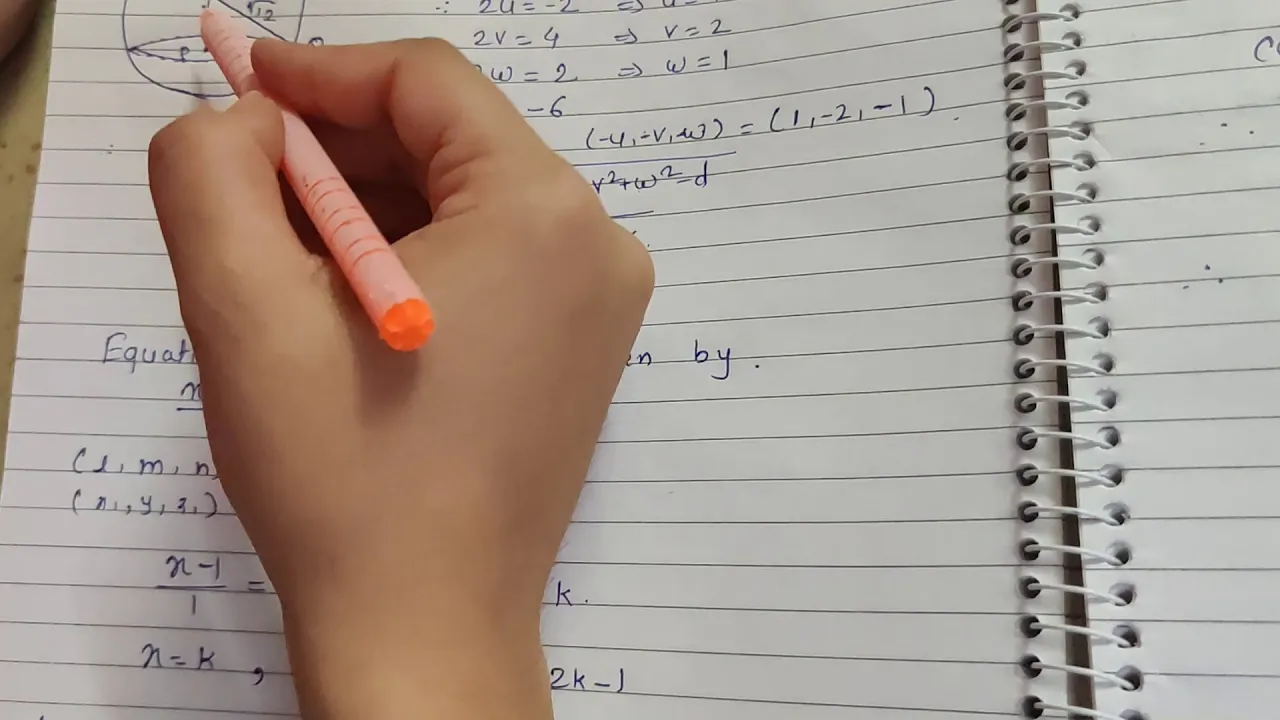 √12
P
∴ 2u = -2 ⇒ u =
2v = 4 ⇒ v = 2
w = 2 ⇒ w = 1
-6
(-u, -v, -w) = (1, -2, -1).
v²+w²-d
Equat en by.
(l, m, n
(x₁, y, z₁)
x-1
1
=
k.
x = k ,
2k-1